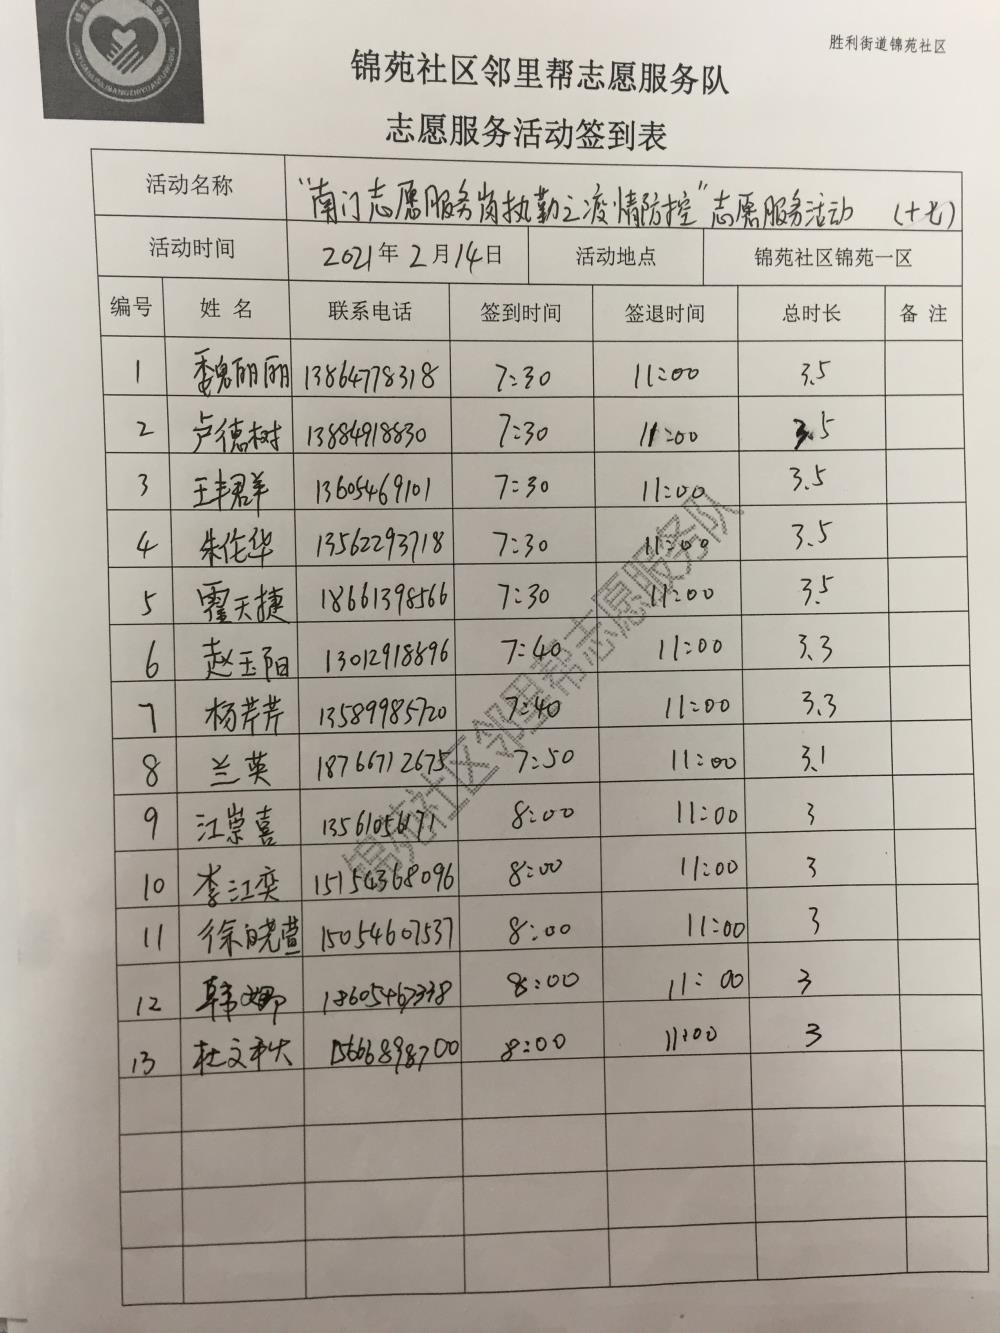 胜利街道锦苑社区
锦苑社区邻里帮志愿服务队
志愿服务活动签到表
活动名称 “南门志愿服务岗执勤之疫情防控”志愿服务活动 (十七)
活动时间 2021年2月14日 活动地点 锦苑社区锦苑一区
编号 姓名 联系电话 签到时间 签退时间 总时长 备注
1 魏丽丽 13864778318 7:30 11:00 3.5
2 卢德树 13884918830 7:30 11:00 3.5
3 王丰群 13605469101 7:30 11:00 3.5
4 朱伦华 13562293718 7:30 11:00 3.5
5 霍天捷 18661398566 7:30 11:00 3.5
6 赵玉阳 13012918896 7:40 11:00 3.3
7 杨芹芹 13589985720 7:40 11:00 3.3
8 兰英 18766712675 7:50 11:00 3.1
9 江崇喜 8:00 11:00 3
10 李江奕 15154368096 8:00 11:00 3
11 徐晓萱 15054607537 8:00 11:00 3
12 韩娜 8:00 11:00 3
13 杜文秋 8:00 11:00 3
锦苑社区邻里帮志愿服务队